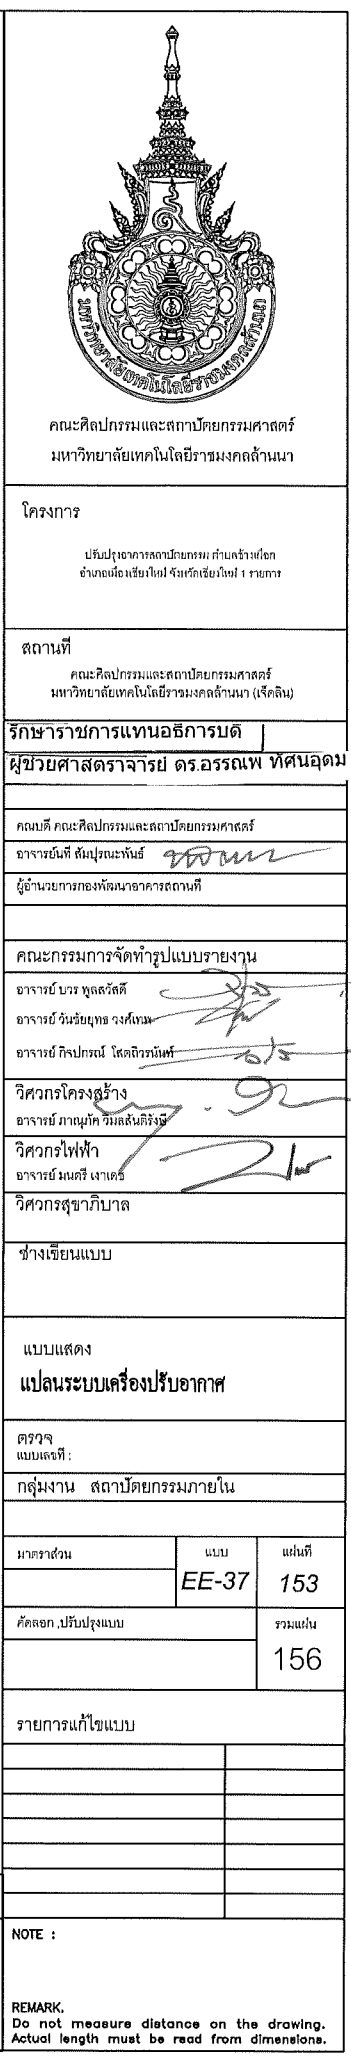 มหาวิทยาลัยเทคโนโลยีราชมงคลล้านนา
คณะศิลปกรรมและสถาปัตยกรรมศาสตร์
มหาวิทยาลัยเทคโนโลยีราชมงคลล้านนา
โครงการ
ปรับปรุงอาคารสถาปัตยกรรม ตำบลช้างเผือก
อำเภอเมืองเชียงใหม่ จังหวัดเชียงใหม่ 1 รายการ
สถานที่
คณะศิลปกรรมและสถาปัตยกรรมศาสตร์
มหาวิทยาลัยเทคโนโลยีราชมงคลล้านนา (เจ็ดลิน)
รักษาราชการแทนอธิการบดี
ผู้ช่วยศาสตราจารย์ ดร.อรรณพ ทัศนอุดม
คณบดี คณะศิลปกรรมและสถาปัตยกรรมศาสตร์
อาจารย์นที สัมปุรณะพันธ์
ผู้อำนวยการกองพัฒนาอาคารสถานที่
คณะกรรมการจัดทำรูปแบบรายงาน
อาจารย์ บวร พูลสวัสดิ์
อาจารย์ วันชัยยุทธ วงค์เทพ
อาจารย์ กิจปกรณ์ โสตถิวรนันท์
วิศวกรโครงสร้าง
อาจารย์ ภาณุภัค วิมลสันติรังษี
วิศวกรไฟฟ้า
อาจารย์ มนตรี เงาเดช
วิศวกรสุขาภิบาล
ช่างเขียนแบบ
แบบแสดง
แปลนระบบเครื่องปรับอากาศ
ตรวจ
แบบเลขที่ :
กลุ่มงาน สถาปัตยกรรมภายใน
มาตราส่วน แบบ แผ่นที่
EE-37 153
คัดลอก ,ปรับปรุงแบบ รวมแผ่น
156
รายการแก้ไขแบบ
NOTE :
REMARK.
Do not measure distance on the drawing.
Actual length must be read from dimensions.